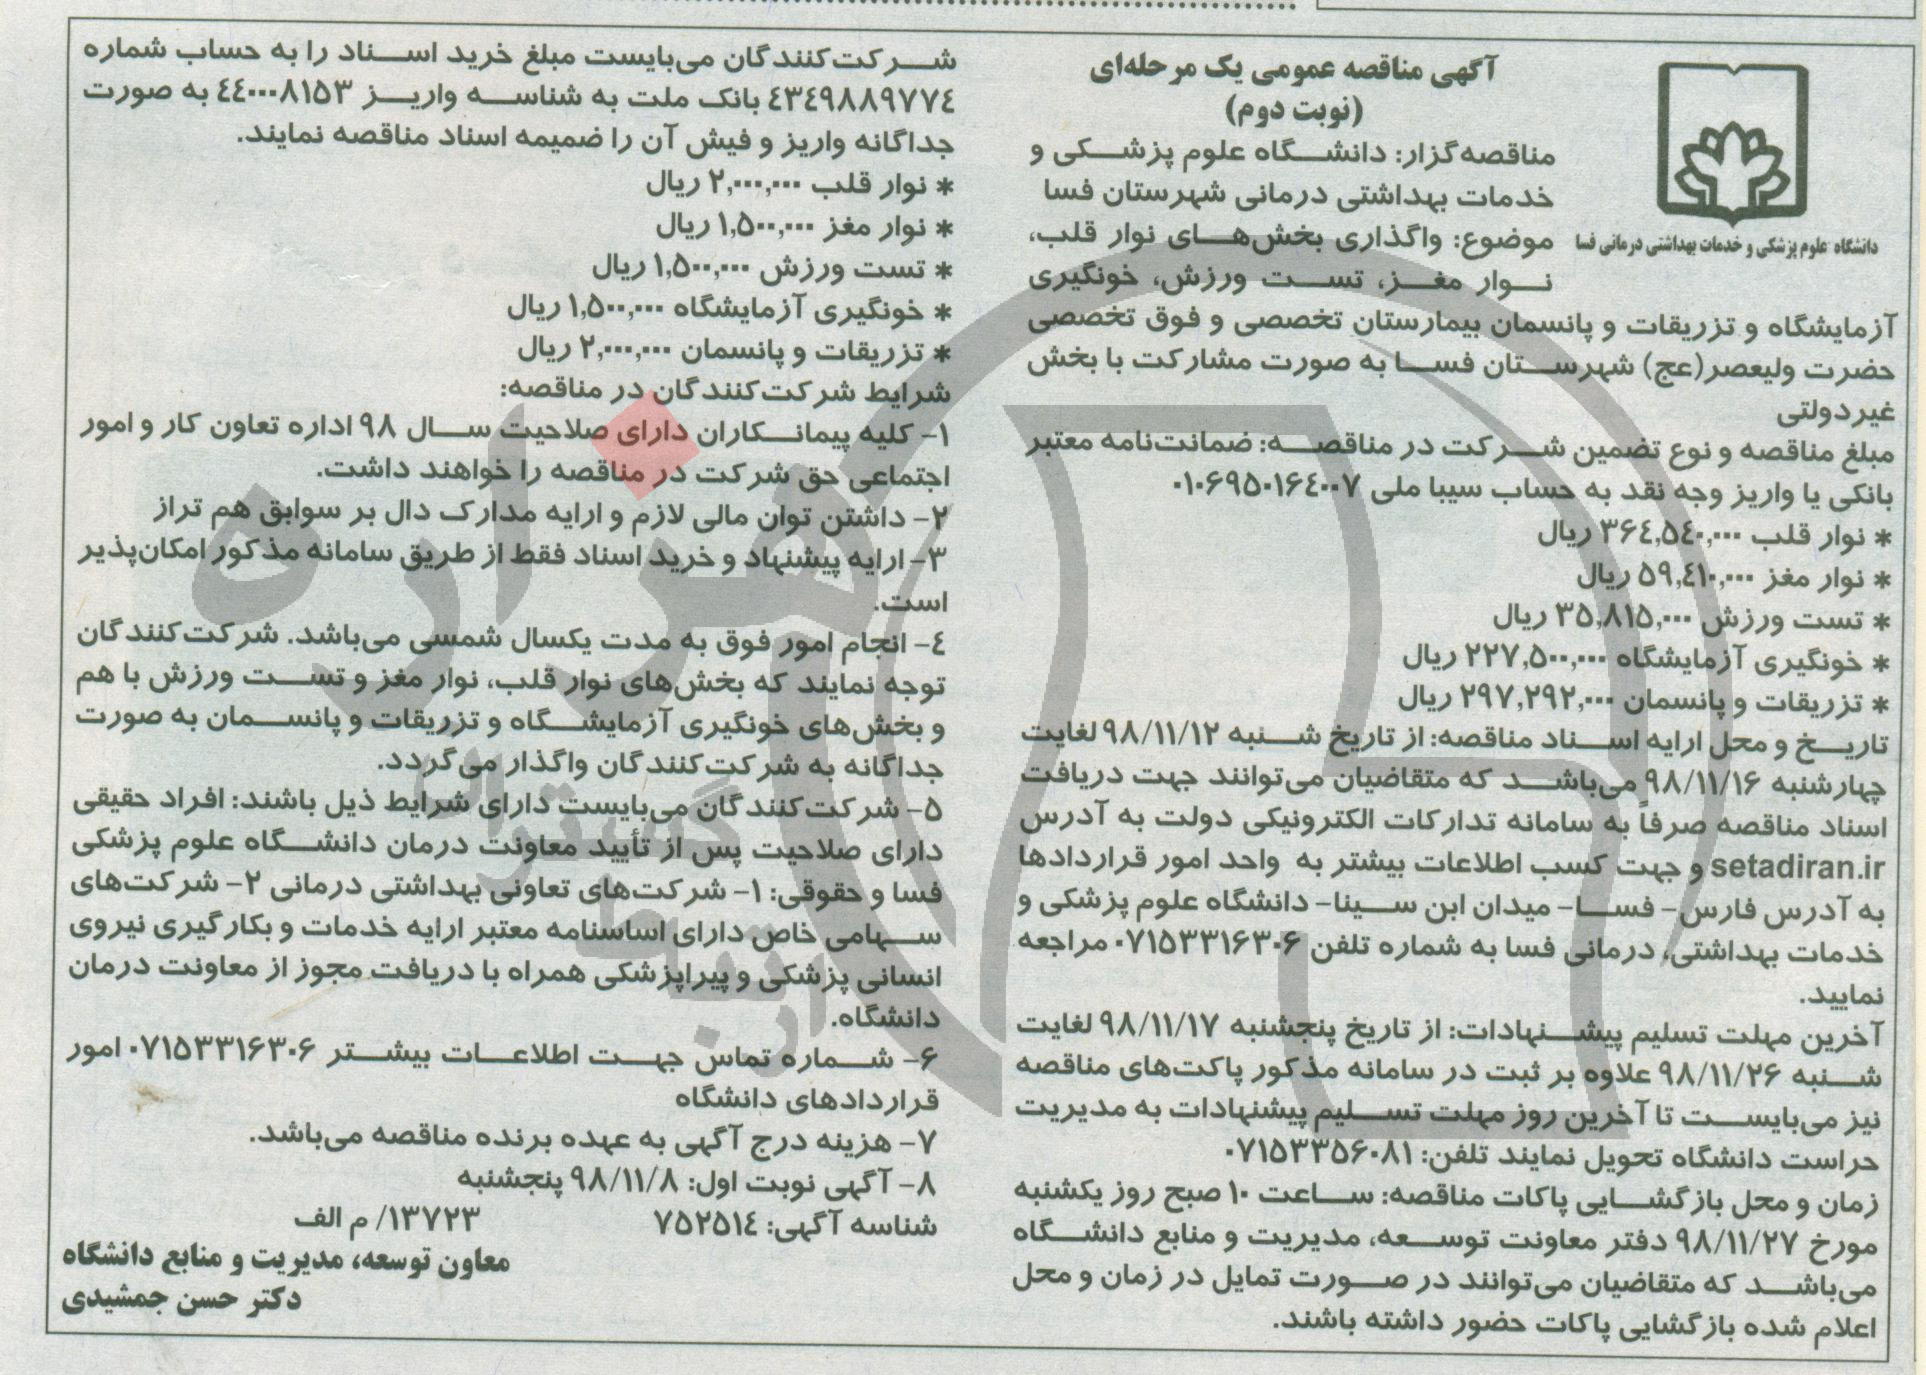 آگهی مناقصه عمومی یک مرحله‌ای
(نوبت دوم)
دانشگاه علوم پزشکی و خدمات بهداشتی درمانی فسا
مناقصه‌گزار: دانشگاه علوم پزشکی و
خدمات بهداشتی درمانی شهرستان فسا
موضوع: واگذاری بخش‌های نوار قلب،
نوار مغز، تست ورزش، خونگیری
آزمایشگاه و تزریقات و پانسمان بیمارستان تخصصی و فوق تخصصی
حضرت ولیعصر(عج) شهرستان فسا به صورت مشارکت با بخش
غیردولتی
مبلغ مناقصه و نوع تضمین شرکت در مناقصه: ضمانت‌نامه معتبر
بانکی یا واریز وجه نقد به حساب سیبا ملی ۰۱۰۶۹۵۰۱۶۴۰۰۷
* نوار قلب ۳۶۴,۵۴۰,۰۰۰ ریال
* نوار مغز ۵۹,۴۱۰,۰۰۰ ریال
* تست ورزش ۳۵,۸۱۵,۰۰۰ ریال
* خونگیری آزمایشگاه ۲۲۷,۵۰۰,۰۰۰ ریال
* تزریقات و پانسمان ۲۹۷,۲۹۲,۰۰۰ ریال
تاریخ و محل ارایه اسناد مناقصه: از تاریخ شنبه ۹۸/۱۱/۱۲ لغایت
چهارشنبه ۹۸/۱۱/۱۶ می‌باشد که متقاضیان می‌توانند جهت دریافت
اسناد مناقصه صرفاً به سامانه تدارکات الکترونیکی دولت به آدرس
setadiran.ir و جهت کسب اطلاعات بیشتر به واحد امور قراردادها
به آدرس فارس- فسا- میدان ابن سینا- دانشگاه علوم پزشکی و
خدمات بهداشتی، درمانی فسا به شماره تلفن ۰۷۱۵۳۳۱۶۳۰۶ مراجعه
نمایید.
آخرین مهلت تسلیم پیشنهادات: از تاریخ پنجشنبه ۹۸/۱۱/۱۷ لغایت
شنبه ۹۸/۱۱/۲۶ علاوه بر ثبت در سامانه مذکور پاکت‌های مناقصه
نیز می‌بایست تا آخرین روز مهلت تسلیم پیشنهادات به مدیریت
حراست دانشگاه تحویل نمایند تلفن: ۰۷۱۵۳۳۵۶۰۸۱
زمان و محل بازگشایی پاکات مناقصه: ساعت ۱۰ صبح روز یکشنبه
مورخ ۹۸/۱۱/۲۷ دفتر معاونت توسعه، مدیریت و منابع دانشگاه
می‌باشد که متقاضیان می‌توانند در صورت تمایل در زمان و محل
اعلام شده بازگشایی پاکات حضور داشته باشند.
شرکت‌کنندگان می‌بایست مبلغ خرید اسناد را به حساب شماره
۴۳۴۹۸۸۹۷۷۴ بانک ملت به شناسه واریز ۴۴۰۰۰۸۱۵۳ به صورت
جداگانه واریز و فیش آن را ضمیمه اسناد مناقصه نمایند.
* نوار قلب ۲,۰۰۰,۰۰۰ ریال
* نوار مغز ۱,۵۰۰,۰۰۰ ریال
* تست ورزش ۱,۵۰۰,۰۰۰ ریال
* خونگیری آزمایشگاه ۱,۵۰۰,۰۰۰ ریال
* تزریقات و پانسمان ۲,۰۰۰,۰۰۰ ریال
شرایط شرکت‌کنندگان در مناقصه:
۱- کلیه پیمانکاران دارای صلاحیت سال ۹۸ اداره تعاون کار و امور
اجتماعی حق شرکت در مناقصه را خواهند داشت.
۲- داشتن توان مالی لازم و ارایه مدارک دال بر سوابق هم تراز
۳- ارایه پیشنهاد و خرید اسناد فقط از طریق سامانه مذکور امکان‌پذیر
است.
۴- انجام امور فوق به مدت یکسال شمسی می‌باشد. شرکت‌کنندگان
توجه نمایند که بخش‌های نوار قلب، نوار مغز و تست ورزش با هم
و بخش‌های خونگیری آزمایشگاه و تزریقات و پانسمان به صورت
جداگانه به شرکت‌کنندگان واگذار می‌گردد.
۵- شرکت‌کنندگان می‌بایست دارای شرایط ذیل باشند: افراد حقیقی
دارای صلاحیت پس از تأیید معاونت درمان دانشگاه علوم پزشکی
فسا و حقوقی: ۱- شرکت‌های تعاونی بهداشتی درمانی ۲- شرکت‌های
سهامی خاص دارای اساسنامه معتبر ارایه خدمات و بکارگیری نیروی
انسانی پزشکی و پیراپزشکی همراه با دریافت مجوز از معاونت درمان
دانشگاه.
۶- شماره تماس جهت اطلاعات بیشتر ۰۷۱۵۳۳۱۶۳۰۶ امور
قراردادهای دانشگاه
۷- هزینه درج آگهی به عهده برنده مناقصه می‌باشد.
۸- آگهی نوبت اول: ۹۸/۱۱/۸ پنجشنبه
شناسه آگهی: ۷۵۲۵۱۴ ۱۳۷۲۳/ م الف
معاون توسعه، مدیریت و منابع دانشگاه
دکتر حسن جمشیدی
هزاره